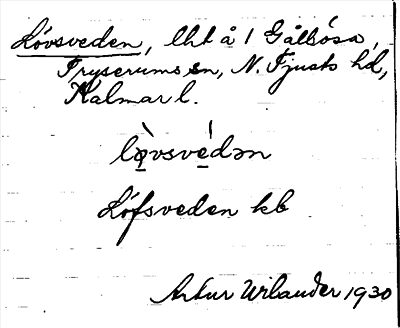 Lövsveden, lht å 1 Gåltósa,
Tryserums sn, N. Tjusts hd,
Kalmar l.
lo̱vsve̱dən
Löfsveden kb
Artur Wilander 1930